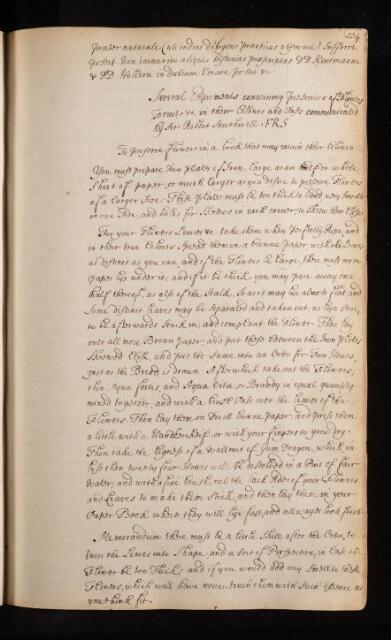 præter naturale (uti index diligens practicus observare) Sufferre
potest. Non immerito aliquis historias DD. Kentmanni
& DD. in dubium vocare potest &c
Several Experiments concerning Preserving of Flowers
Fruits &c in their Colours and communicated
by Sr Robert Southwell FRS
To preserve flowers in a book that may retain their Colours
You must prepare two plates of Iron, large as an half or whole
Sheet of paper, or much larger as you desire to preserve Flowers
of a larger size. These plates must be too thick to bend very smooth
in one side, and holes for Screws in each corner, to skrew them close.
For your Flowers Leaves &c take them when perfectly Ripe, and
in their true Colours Spread them on a brown paper with the Leaves
as distinct as you can, and if the Flower be large, there must more
paper lye under it, and if it be thick, you may pare away one
half thereof, as also of the Stalk, so as it may lye almost flat, and
some distinct leaves may be separated and taken out, as lye
to be afterwards struck in, and compleat the Flower. Then lay
over all more Brown paper, and put these between the Iron plates
skrewed close, and put the same into an Oven for two hours,
just as the Bread is drawn. After which take out the Flowers;
then Aqua fortis, and Aqua vitæ, or Brandy in equal quantity
mixed together, and with a brush pass over the leaves of the
Flowers. Then lay them on fresh brown paper, and press them
a little with a Handkercheif, or with your fingers to grow dry.
Then take the bigness of a Wallnut of Gum Dragon, which in
less then twenty four hours will be dissolved in a Pint of fair
Water; and with a fine brush rub the back sides of your Flowers
and Leaves to make them stick, and then lay them in your
Paper Book where they will lye fast, and allwayes look fresh
Memorandum there must be a little skill after the Oven, to
turn the Leaves into Shape, and a sort of Perspective, in case the
Flower be too thick; and if you would add any Smell to these
Flowers, which will have none, touch them with such Essence as
you think fit.